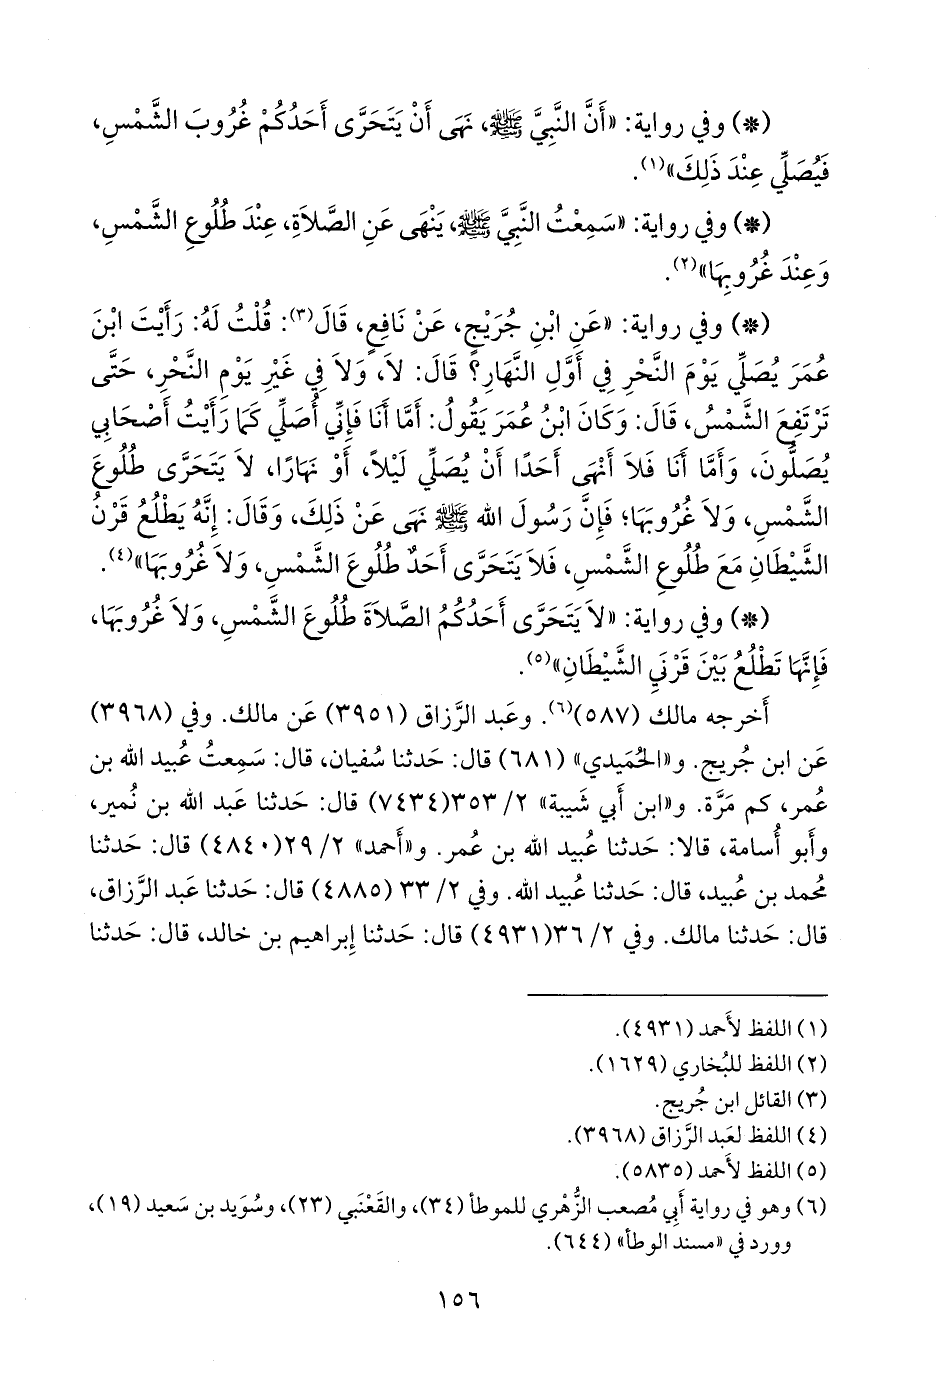 (*) وفي رواية: «أَنَّ النَّبِيَّ ﷺ، نَهَى أَنْ يَتَحَرَّى أَحَدُكُمْ غُرُوبَ الشَّمْسِ،
فَيُصَلِّي عِنْدَ ذَلِكَ»(١).
(*) وفي رواية: «سَمِعْتُ النَّبِيَّ ﷺ، يَنْهَى عَنِ الصَّلَاةِ، عِنْدَ طُلُوعِ الشَّمْسِ،
وَعِنْدَ غُرُوبِهَا»(٢).
(*) وفي رواية: «عَنِ ابْنِ جُرَيْجٍ، عَنْ نَافِعٍ، قَالَ(٣): قُلْتُ لَهُ: رَأَيْتَ ابْنَ
عُمَرَ يُصَلِّي يَوْمَ النَّحْرِ فِي أَوَّلِ النَّهَارِ؟ قَالَ: لَا، وَلَا فِي غَيْرِ يَوْمِ النَّحْرِ، حَتَّى
تَرْتَفِعَ الشَّمْسُ، قَالَ: وَكَانَ ابْنُ عُمَرَ يَقُولُ: أَمَّا أَنَا فَإِنِّي أُصَلِّي كَمَا رَأَيْتُ أَصْحَابِي
يُصَلُّونَ، وَأَمَّا أَنَا فَلَا أَنْهَى أَحَدًا أَنْ يُصَلِّيَ لَيْلاً، أَوْ نَهَارًا، لَا يَتَحَرَّى طُلُوعَ
الشَّمْسِ، وَلَا غُرُوبَهَا؛ فَإِنَّ رَسُولَ الله ﷺ نَهَى عَنْ ذَلِكَ، وَقَالَ: إِنَّهُ يَطْلُعُ قَرْنُ
الشَّيْطَانِ مَعَ طُلُوعِ الشَّمْسِ، فَلَا يَتَحَرَّى أَحَدٌ طُلُوعَ الشَّمْسِ، وَلَا غُرُوبَهَا»(٤).
(*) وفي رواية: «لَا يَتَحَرَّى أَحَدُكُمُ الصَّلَاةَ طُلُوعَ الشَّمْسِ، وَلَا غُرُوبَهَا،
فَإِنَّهَا تَطْلُعُ بَيْنَ قَرْنَيِ الشَّيْطَانِ»(٥).
أَخرجه مالك (٥٨٧)(٦). وعَبد الرَّزاق (٣٩٥١) عَن مالك. وفي (٣٩٦٨)
عَن ابن جُريج. و«الحُمَيدي» (٦٨١) قال: حَدثنا سُفيان، قال: سَمِعتُ عُبيد الله بن
عُمر، كم مَرَّة. و«ابن أَبي شَيبة» ٢/ ٣٥٣(٧٤٣٤) قال: حَدثنا عَبد الله بن نُمير،
وأَبو أُسامة، قالا: حَدثنا عُبيد الله بن عُمر. و«أَحمد» ٢/ ٢٩(٤٨٤٠) قال: حَدثنا
مُحمد بن عُبيد، قال: حَدثنا عُبيد الله. وفي ٢/ ٣٣ (٤٨٨٥) قال: حَدثنا عَبد الرَّزاق،
قال: حَدثنا مالك. وفي ٢/ ٣٦(٤٩٣١) قال: حَدثنا إِبراهيم بن خالد، قال: حَدثنا
(١) اللفظ لأَحمد (٤٩٣١).
(٢) اللفظ للبُخاري (١٦٢٩).
(٣) القائل ابن جُريج.
(٤) اللفظ لعَبد الرَّزاق (٣٩٦٨).
(٥) اللفظ لأَحمد (٥٨٣٥).
(٦) وهو في رواية أَبي مُصعب الزُّهْري للموطأ (٣٤)، والقَعْنَبي (٢٣)، وسُوَيد بن سَعيد (١٩)،
وورد في «مسند الوطأ» (٦٤٤).
١٥٦